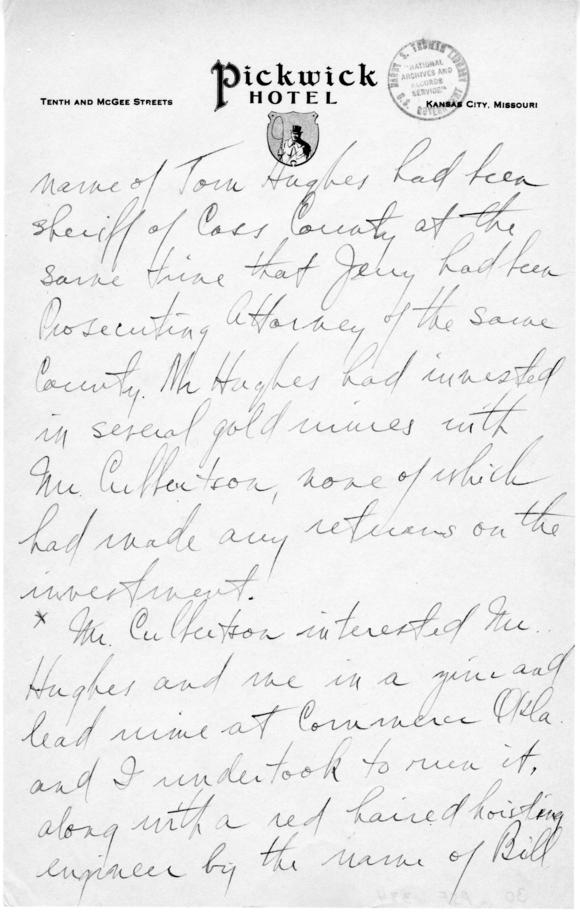 Pickwick
HOTEL
TENTH AND MCGEE STREETS
KANSAS CITY, MISSOURI
HARRY S. TRUMAN LIBRARY
"NATIONAL
ARCHIVES AND
RECORDS
SERVICE"
U.S. GOVERNMENT
name of Tom Hughes had been
sheriff of Cass County at the
same time that Jerry had been
Prosecuting Attorney of the same
County. Mr Hughes had invested
in several gold mines with
Mr. Culbertson, none of which
had made any returns on the
investment.
x Mr. Culbertson interested Mr.
Hughes and me in a zinc and
lead mine at Commerce Okla.
and I undertook to run it,
along with a red haired hoisting
engineer by the name of Bill